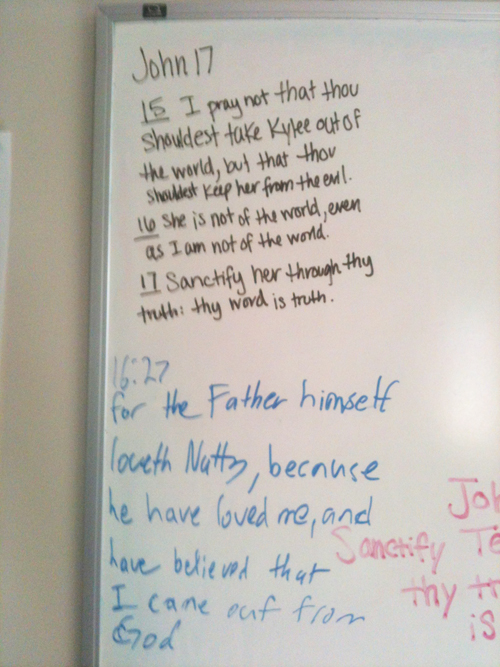 John 17
15 I pray not that thou
shouldest take Kylee out of
the world, but that thou
shouldest keep her from the evil.
16 She is not of the world, even
as I am not of the world.
17 Sanctify her through thy
truth: thy word is truth.
16:27
for the Father himself
loveth Nutty, because
he have loved me, and
have believed that
I came out from
God
Joh
Sanctify Te
thy tr
is